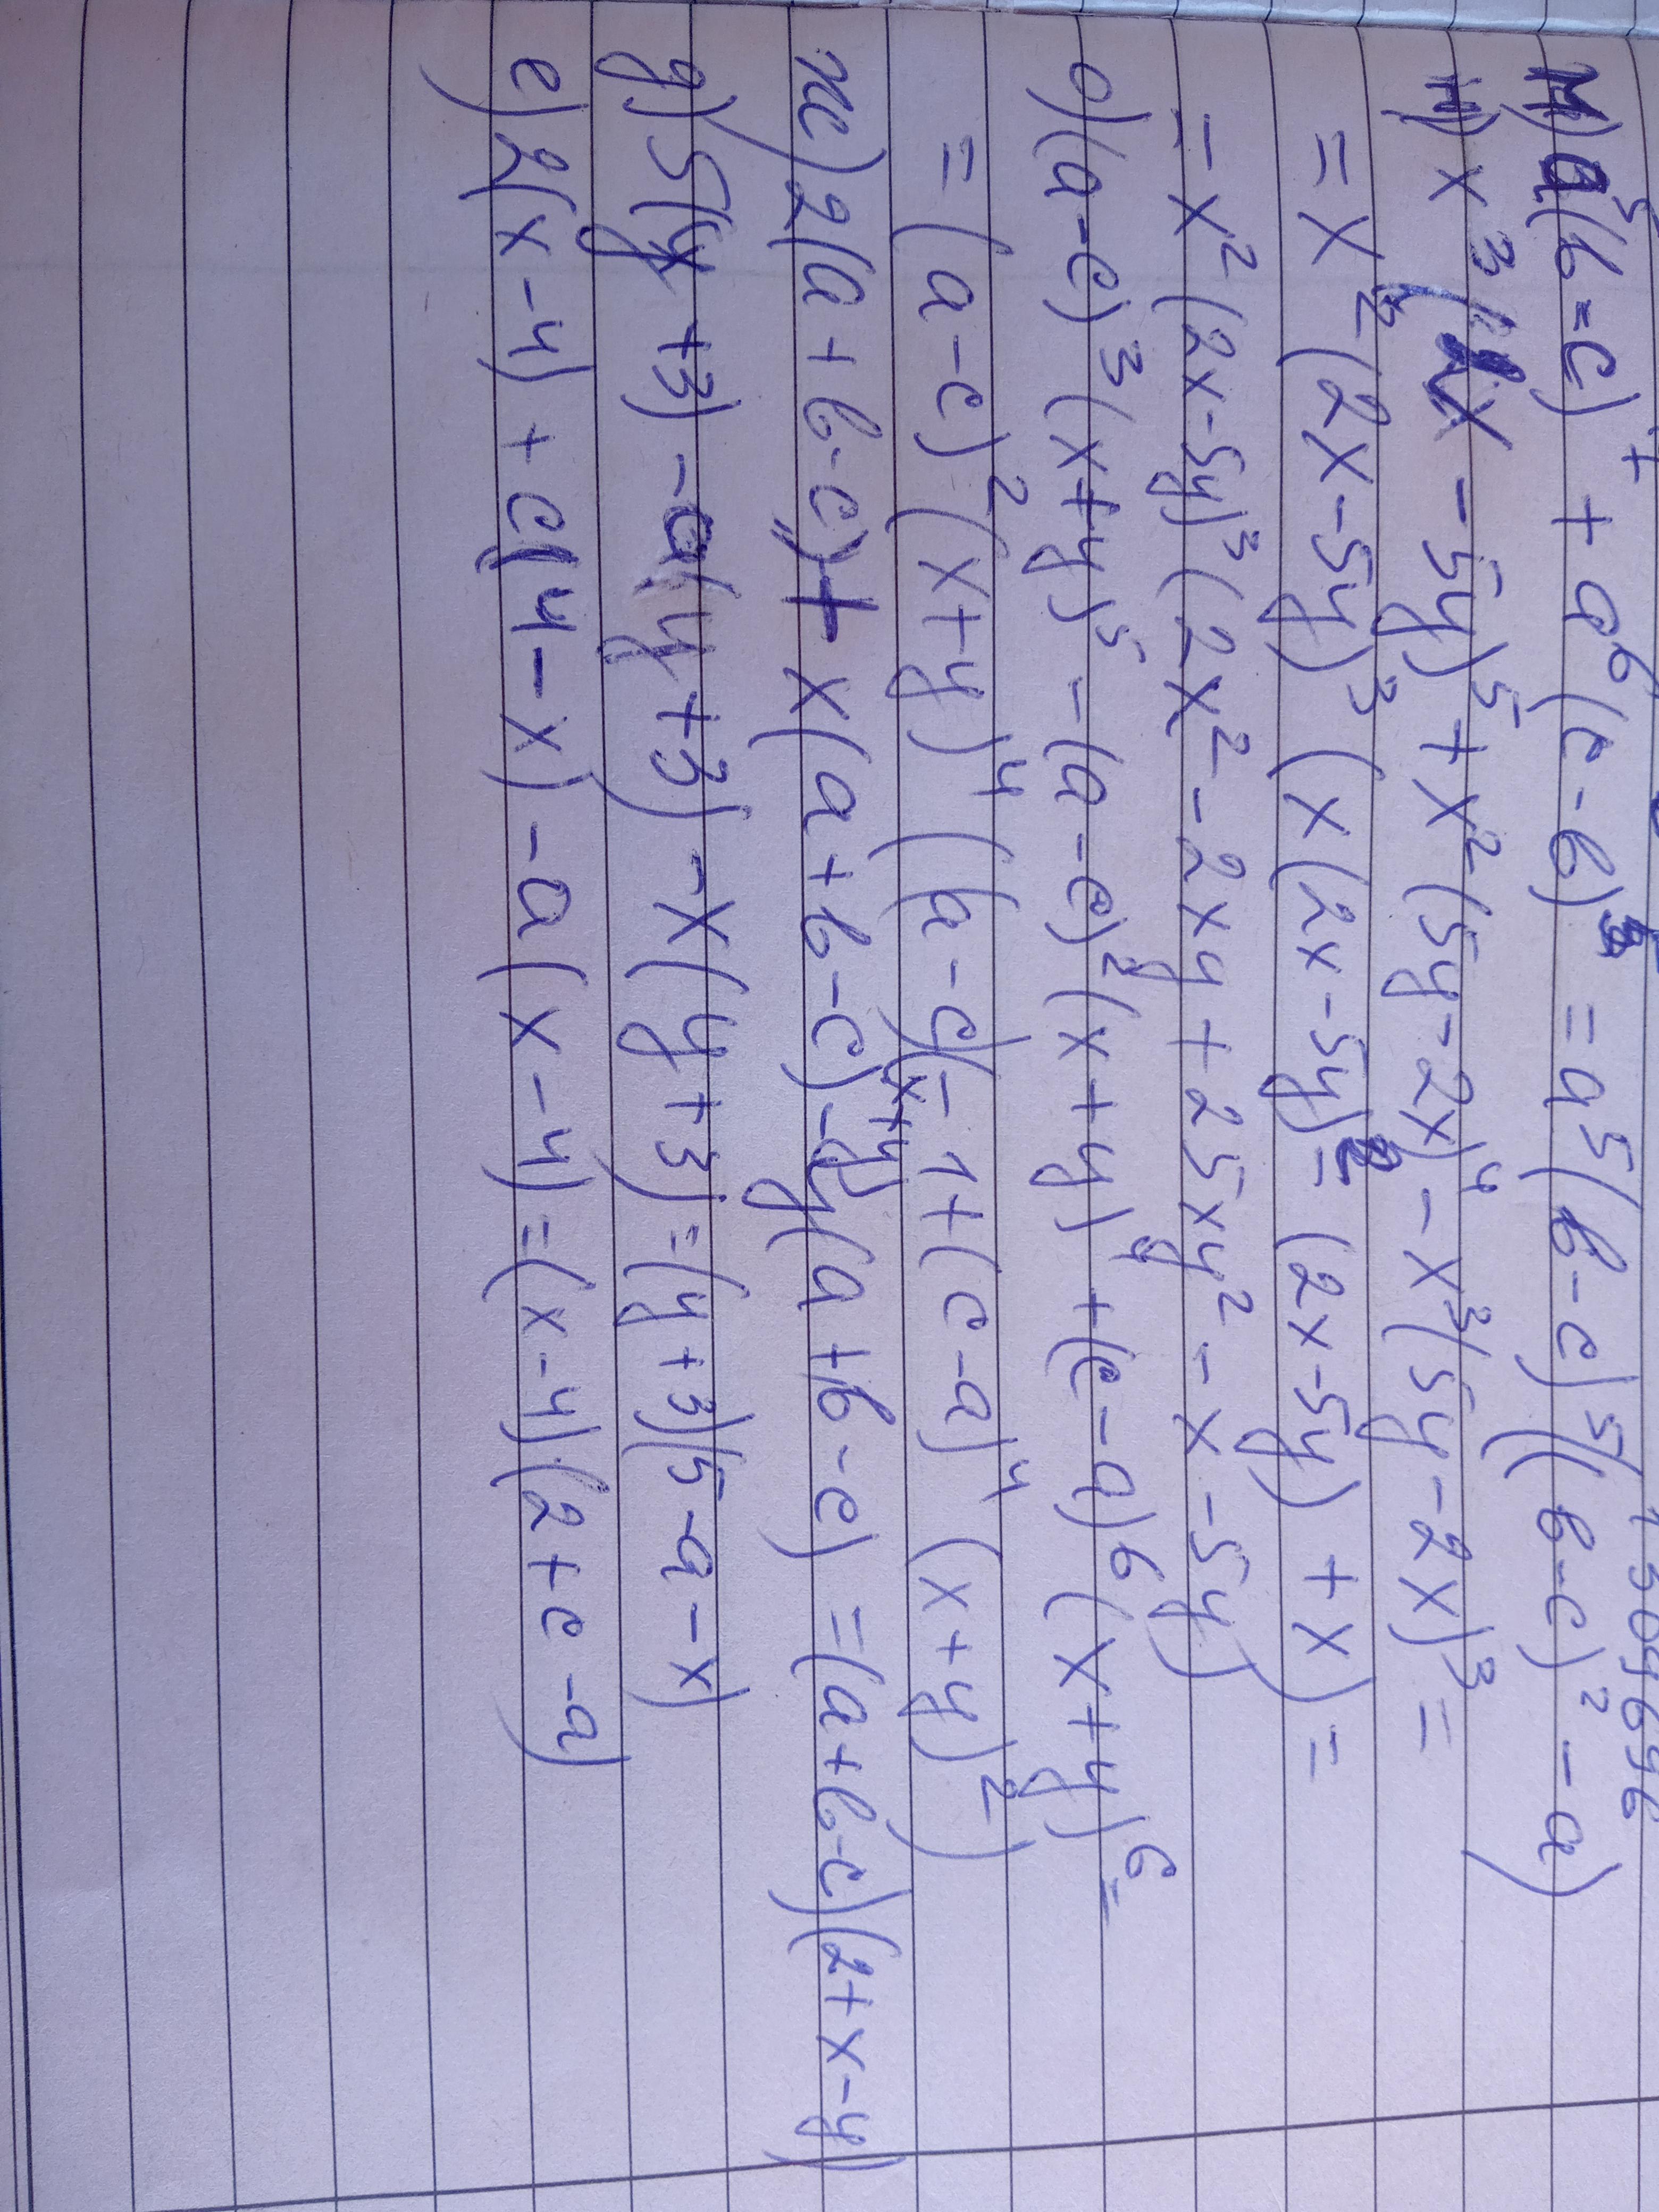 1304696
м) a⁵(b-c)⁷ + a⁶(c-b)⁵ = a⁵(b-c)⁵((b-c)²-a)
н) x³(2x-5y)⁵+x²(5y-2x)⁴-x³(5y-2x)³=
= x²(2x-5y)³(x(2x-5y)²-(2x-5y)+x)=
= x²(2x-5y)³(2x²-2xy+25xy²-x-5y)
о)(a-c)³(x+y)⁵-(a-c)²(x+y)⁴+(c-a)⁶(x+y)⁶=
= (a-c)²(x+y)⁴((a-c)(x+y)-1+(c-a)⁴(x+y)²)
ж)2(a+b-c)+x(a+b-c)-y(a+b-c)=(a+b-c)(2+x-y)
д)5(y+3)-a(y+3)-x(y+3)=(y+3)(5-a-x)
е)2(x-4)+c(4-x)-a(x-4)=(x-4)(2+c-a)